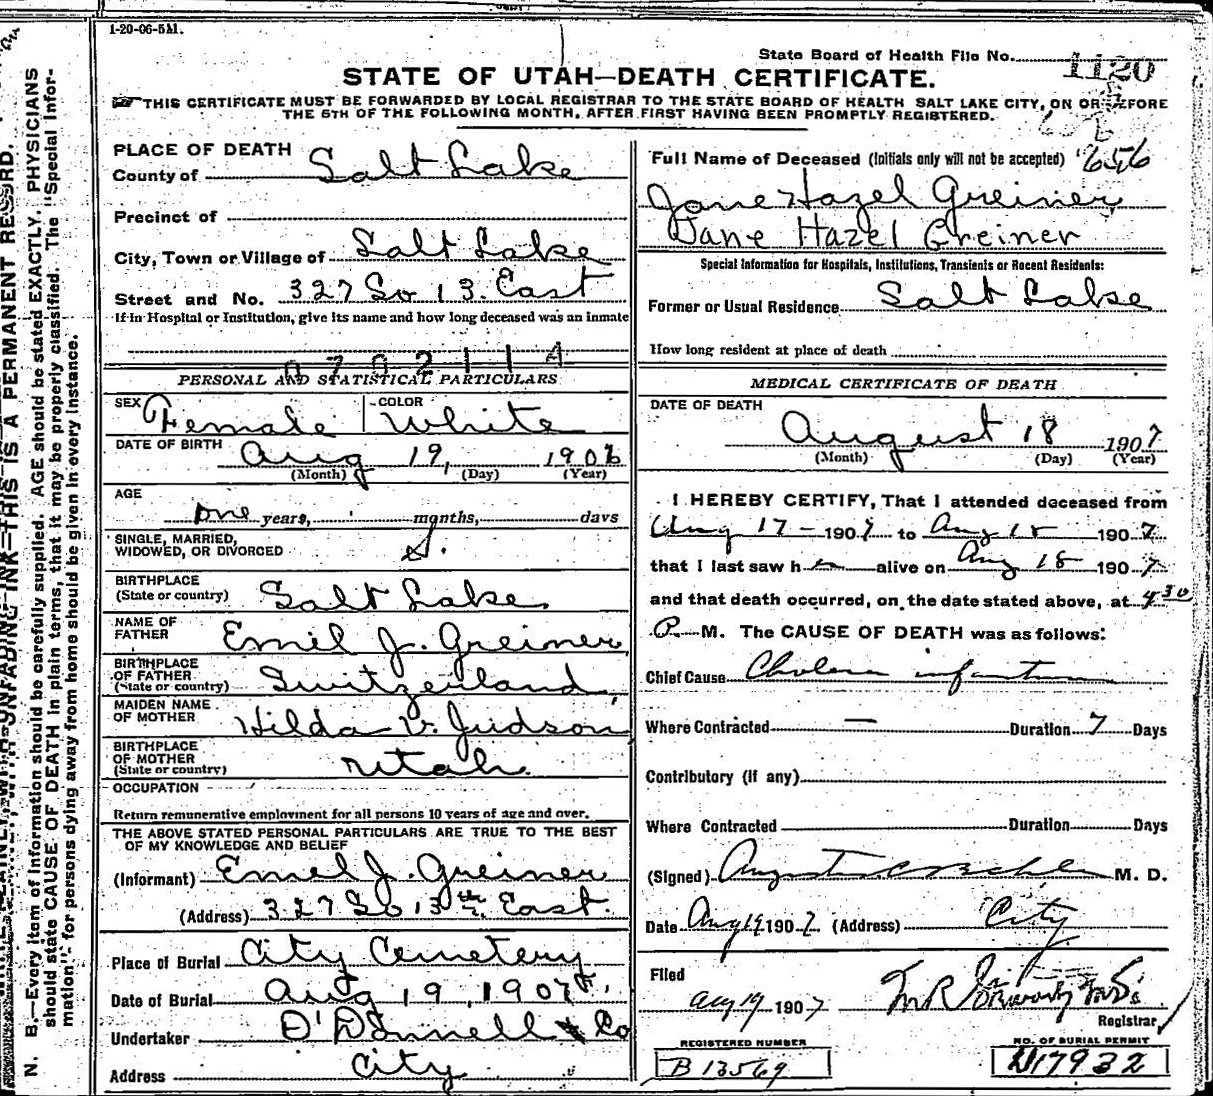 1-20-06-5M.
State Board of Health File No. 1120
STATE OF UTAH—DEATH CERTIFICATE.
THIS CERTIFICATE MUST BE FORWARDED BY LOCAL REGISTRAR TO THE STATE BOARD OF HEALTH SALT LAKE CITY, ON OR BEFORE
THE 5TH OF THE FOLLOWING MONTH, AFTER FIRST HAVING BEEN PROMPTLY REGISTERED.
PLACE OF DEATH
County of Salt Lake
Precinct of
City, Town or Village of Salt Lake
Street and No. 327 So 13. East
If in Hospital or Institution, give its name and how long deceased was an inmate
PERSONAL AND STATISTICAL PARTICULARS
SEX Female COLOR White
DATE OF BIRTH Aug 19, 1906
(Month) (Day) (Year)
AGE
one years, months, days
SINGLE, MARRIED,
WIDOWED, OR DIVORCED S.
BIRTHPLACE
(State or country) Salt Lake.
NAME OF
FATHER Emil J. Greiner
BIRTHPLACE
OF FATHER
(State or country) Switzerland
MAIDEN NAME
OF MOTHER Hilda V. Judson
BIRTHPLACE
OF MOTHER
(State or country) Utah.
OCCUPATION
Return remunerative employment for all persons 10 years of age and over.
THE ABOVE STATED PERSONAL PARTICULARS ARE TRUE TO THE BEST
OF MY KNOWLEDGE AND BELIEF
(Informant) Emil J. Greiner
(Address) 327 So 13th East.
Place of Burial City Cemetery
Date of Burial Aug 19, 1907
Undertaker O'Donnell & Co
Address City
Full Name of Deceased (Initials only will not be accepted) 656
Jane Hazel Greiner
Jane Hazel Greiner
Special Information for Hospitals, Institutions, Transients or Recent Residents:
Former or Usual Residence Salt Lake
How long resident at place of death
MEDICAL CERTIFICATE OF DEATH
DATE OF DEATH
August 18 1907
(Month) (Day) (Year)
I HEREBY CERTIFY, That I attended deceased from
Aug 17 - 1907 to Aug 18 1907
that I last saw h alive on Aug 18 1907
and that death occurred, on the date stated above, at 4 30
P. M. The CAUSE OF DEATH was as follows:
Chief Cause Cholera infantum
Where Contracted — Duration 7 Days
Contributory (if any)
Where Contracted Duration Days
(Signed) August M. D.
Date Aug 19 1907 (Address) City
Filed
Aug 19 1907
Registrar
REGISTERED NUMBER
B 13569
NO. OF BURIAL PERMIT
17932
N. B.—Every item of information should be carefully supplied. AGE should be stated EXACTLY. PHYSICIANS
should state CAUSE OF DEATH in plain terms, that it may be properly classified. The "Special Infor-
mation" for persons dying away from home should be given in every instance.
UNFADING INK—THIS IS A PERMANENT RECORD.